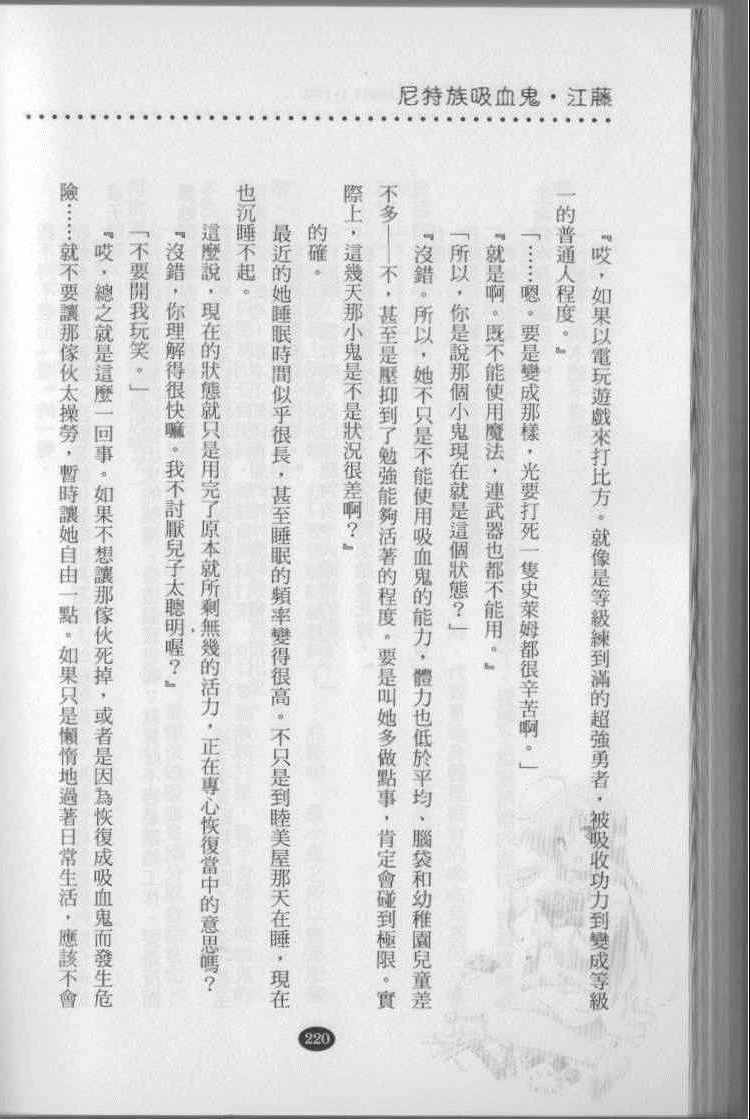 尼特族吸血鬼・江藤
『哎，如果以電玩遊戲來打比方。就像是等級練到滿的超強勇者，被吸收功力到變成等級
一的普通人程度。』
「……嗯。要是變成那樣，光要打死一隻史萊姆都很辛苦啊。」
『就是啊。既不能使用魔法，連武器也都不能用。』
「所以，你是說那個小鬼現在就是這個狀態？」
『沒錯。所以，她不只是不能使用吸血鬼的能力，體力也低於平均、腦袋和幼稚園兒童差
不多——不，甚至是壓抑到了勉強能夠活著的程度。要是叫她多做點事，肯定會碰到極限。實
際上，這幾天那小鬼是不是狀況很差啊？』
的確。
最近的她睡眠時間似乎很長，甚至睡眠的頻率變得很高。不只是到睦美屋那天在睡，現在
也沉睡不起。
這麼說，現在的狀態就只是用完了原本就所剩無幾的活力，正在專心恢復當中的意思嗎？
『沒錯，你理解得很快嘛。我不討厭兒子太聰明喔？』
「不要開我玩笑。」
『哎，總之就是這麼一回事。如果不想讓那傢伙死掉，或者是因為恢復成吸血鬼而發生危
險……就不要讓那傢伙太操勞，暫時讓她自由一點。如果只是懶惰地過著日常生活，應該不會
220